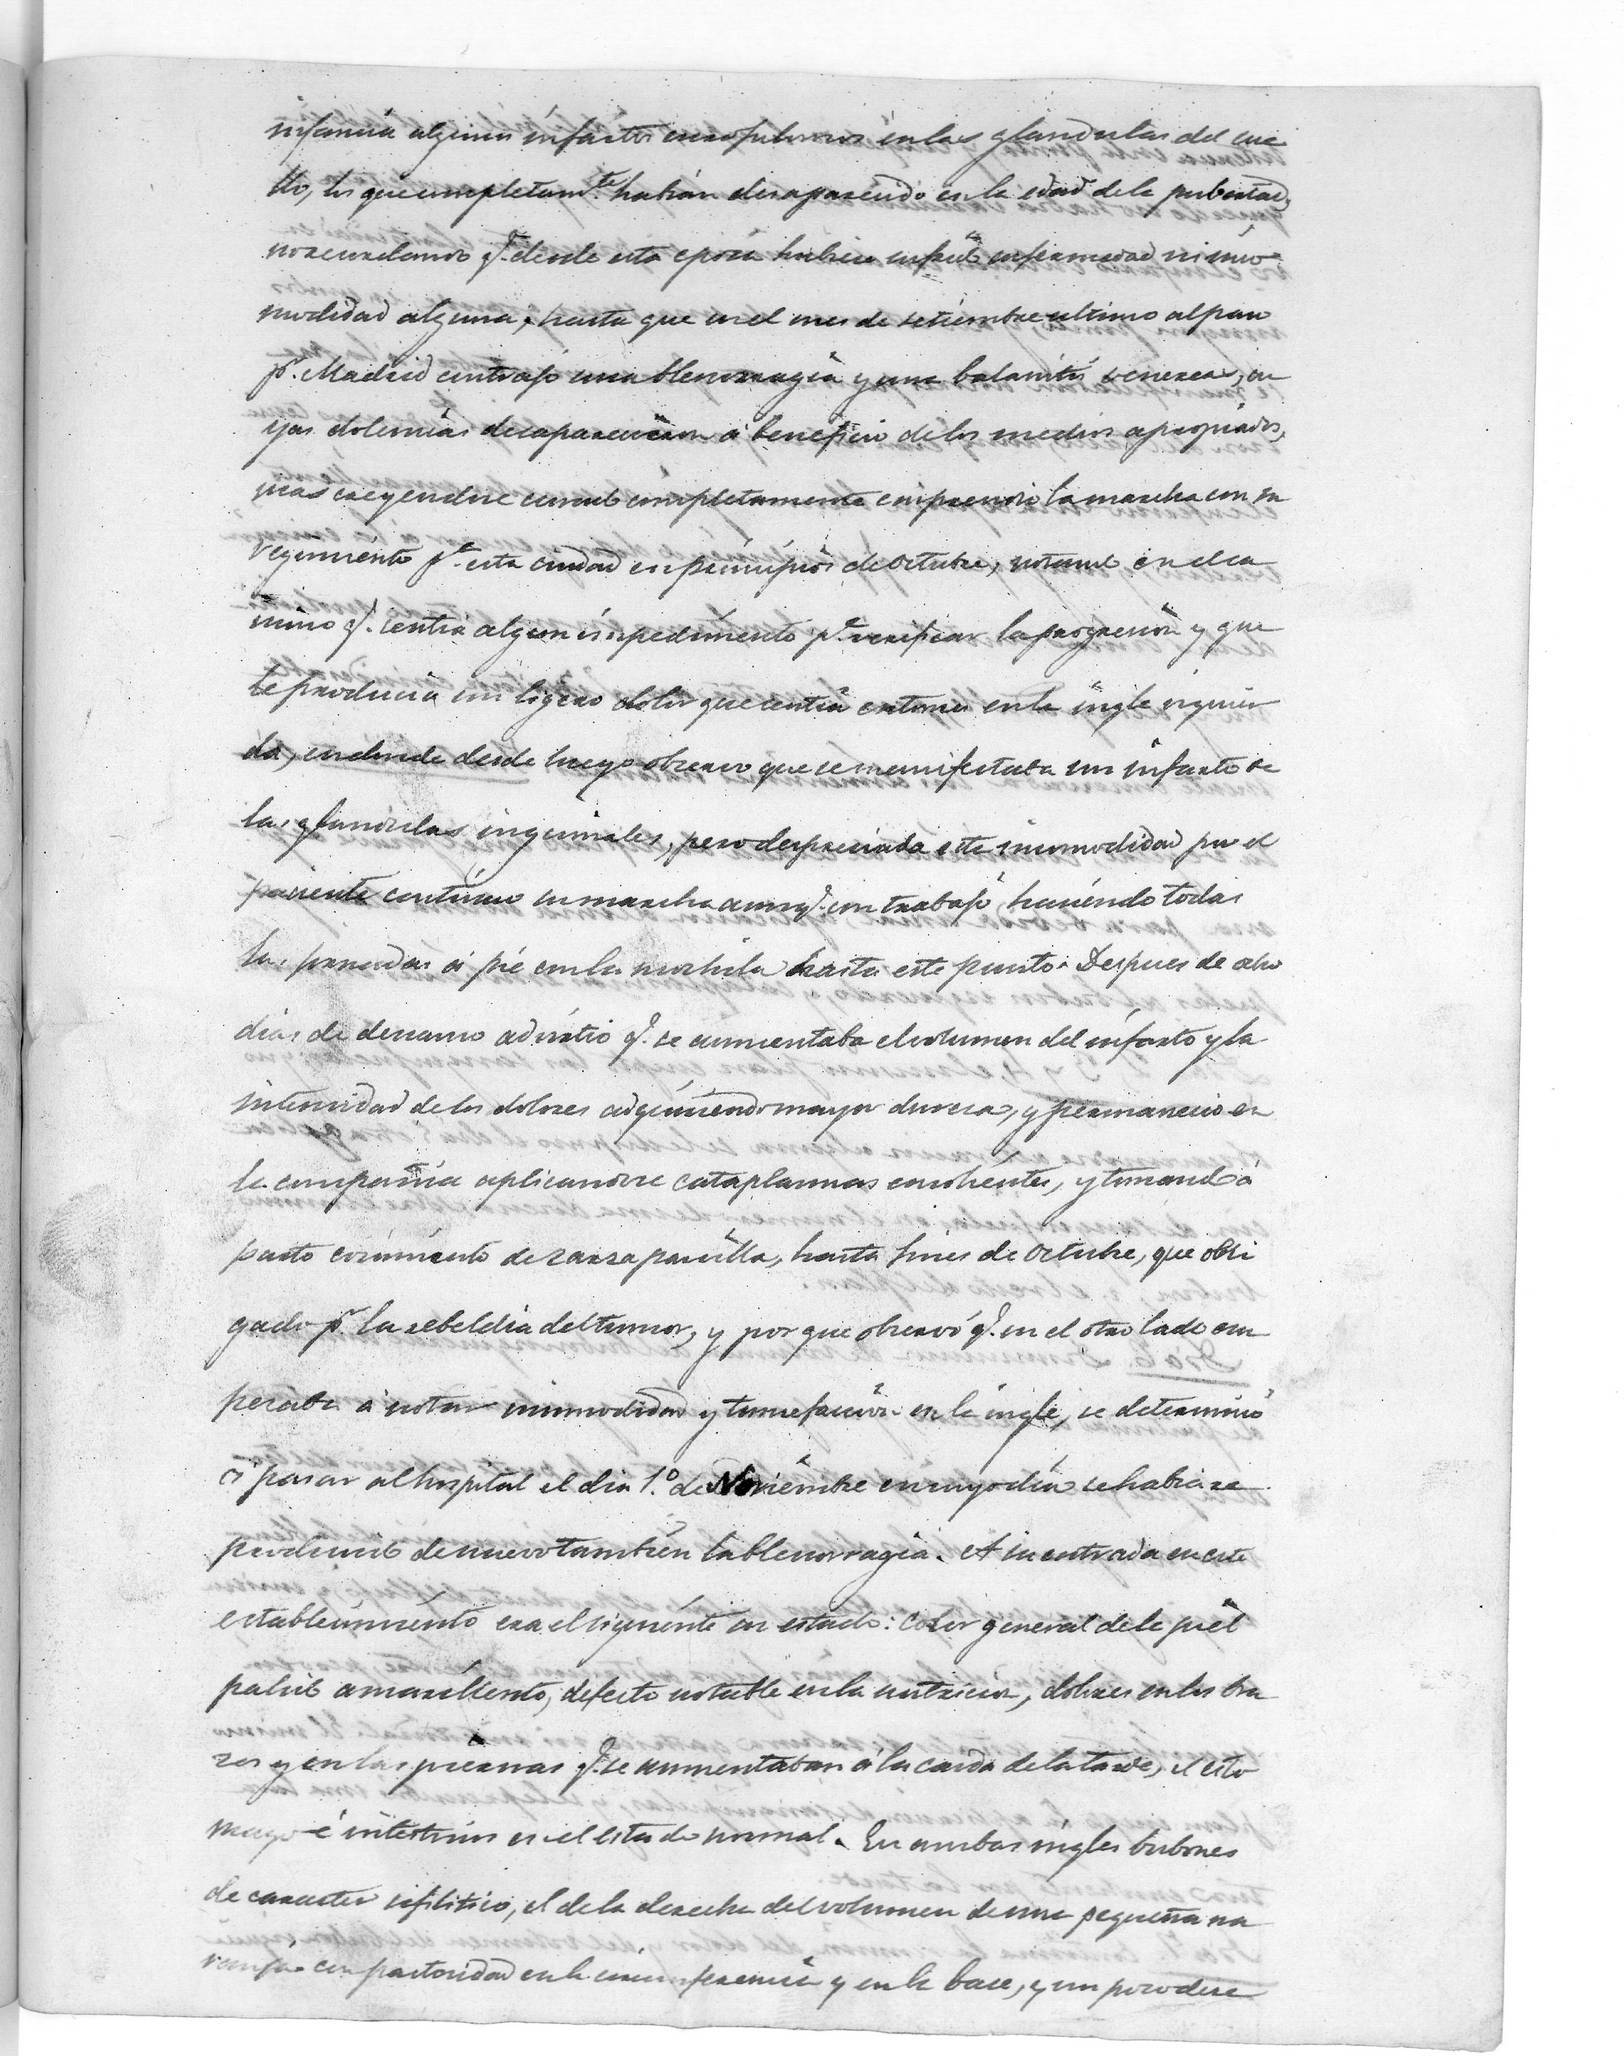 infancia algunos infartos escrofulosos en las glandulas del cue
llo, los que completam.te habian desaparecido en la edad de la pubertad,
no recordando q.e desde esta epoca hubiera sufrido enfermedad ni inco
modidad alguna, hasta que en el mes de setiembre ultimo al pasar
p.r Madrid contrajo una blenorragia y una balanitis venerea, cu
yas dolencias desaparecieron á beneficio de los medios apropiados,
mas creyendose curado completamente emprendio la marcha con su
regimiento p.a esta ciudad en principios de Octubre, notando en el ca
mino q.e sentia algun impedimento p.a verificar la progresion y que
le producia un ligero dolor que sentia entonces en la ingle izquier
da, en donde desde luego observo que se manifestaba un infarto de
las glandulas inguinales, pero despreciada esta incomodidad por el
paciente continuo su marcha aunq.e con trabajo, haciendo todas
las jornadas á pie con la mochila hasta este punto. Despues de ocho
dias de descanso advirtio q.e se aumentaba el volumen del infarto y la
intensidad de los dolores adquiriendo mayor dureza, y permanecio en
la compañia aplicandose cataplasmas emolientes, y tomando á
pasto cocimiento de zarzaparrilla, hasta fines de Octubre, que obli
gado p.r la rebeldia del tumor, y por que observó q.e en el otro lado em
pezaba á notar incomodidad y tumefaccion en la ingle, se determinó
á pasar al hospital el dia 1.º de Noviembre en cuyo dia se habia re
producido de nuevo tambien la blenorragia. A su entrada en este
establecimiento era el siguiente su estado: Color general de la piel
palido amarillento, defecto notable en la nutricion, dolores en los bra
zos y en las piernas q.e se aumentaban á la caida de la tarde, el esto
mago é intestinos en el estado normal. En ambas ingles bubones
de caracter sifilitico, el de la derecha del volumen de una pequeña na
ranja con pastosidad en la circunferencia y en la base, y un poco dere